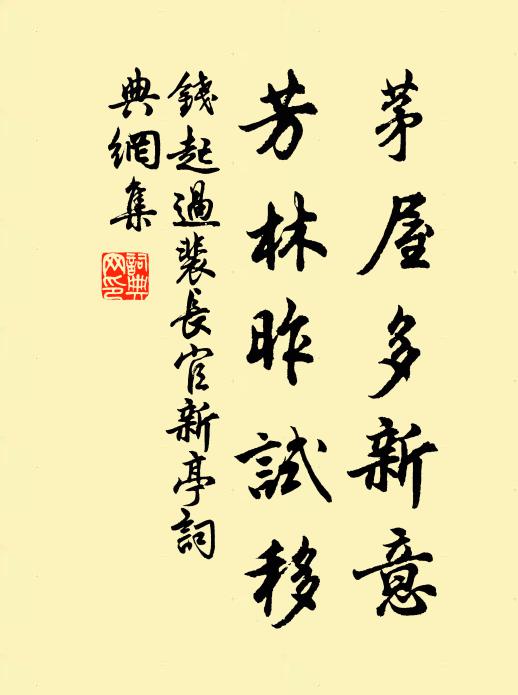 茅屋多新意
芳林昨試移
錢起過裴長官新亭詞
典網集
詞典網印